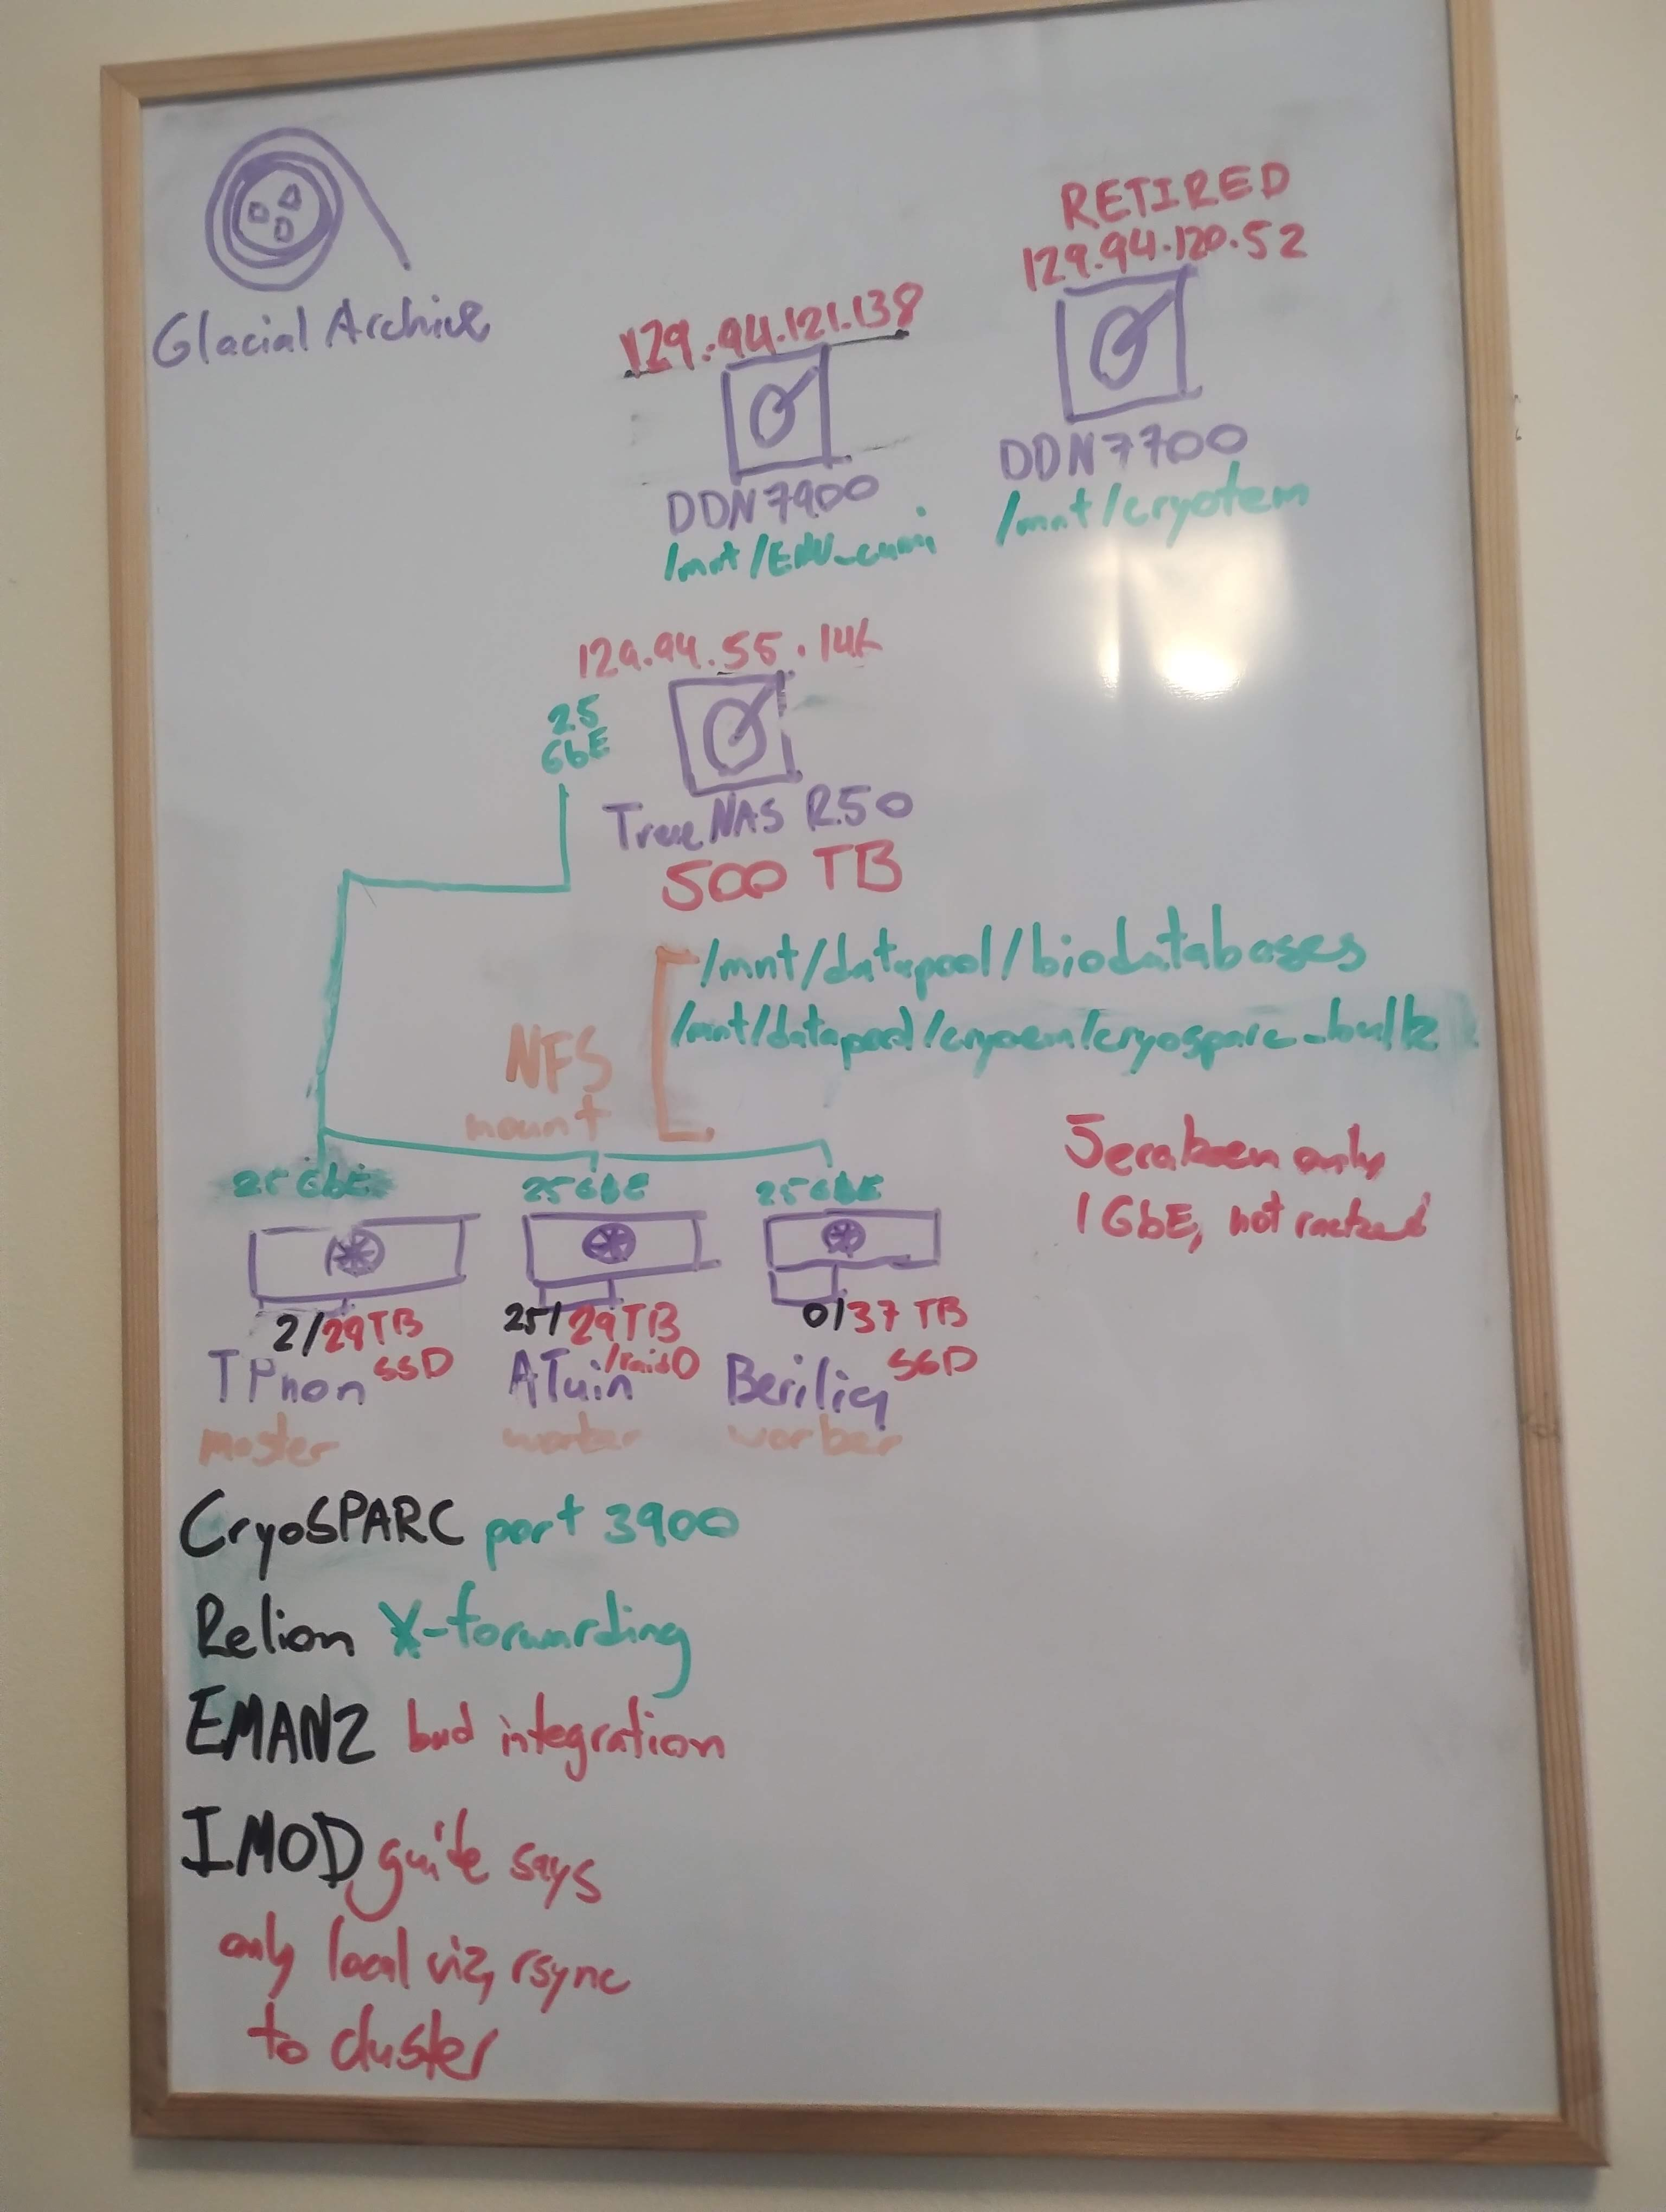 Glacial Archive
RETIRED
129.94.120.52
DDN7700
/mnt/cryotem
129.94.121.138
DDN7900
129.94.55.
25
GbE
TrueNAS R50
500 TB
/mnt/datapool/biodatabases
/mnt/datapool/cryoem/cryosparc_bulk
NFS
mount
only
1 GbE, not racked
25 GbE
25 GbE
25 GbE
2/29TB
SSD
TPhon
master
25/29TB
/raid0
ATuin
worker
0/37 TB
SSD
Berilia
worker
CryoSPARC port 3900
Relion X-forwarding
EMAN2 bad integration
IMOD guite says
only local viz, rsync
to cluster